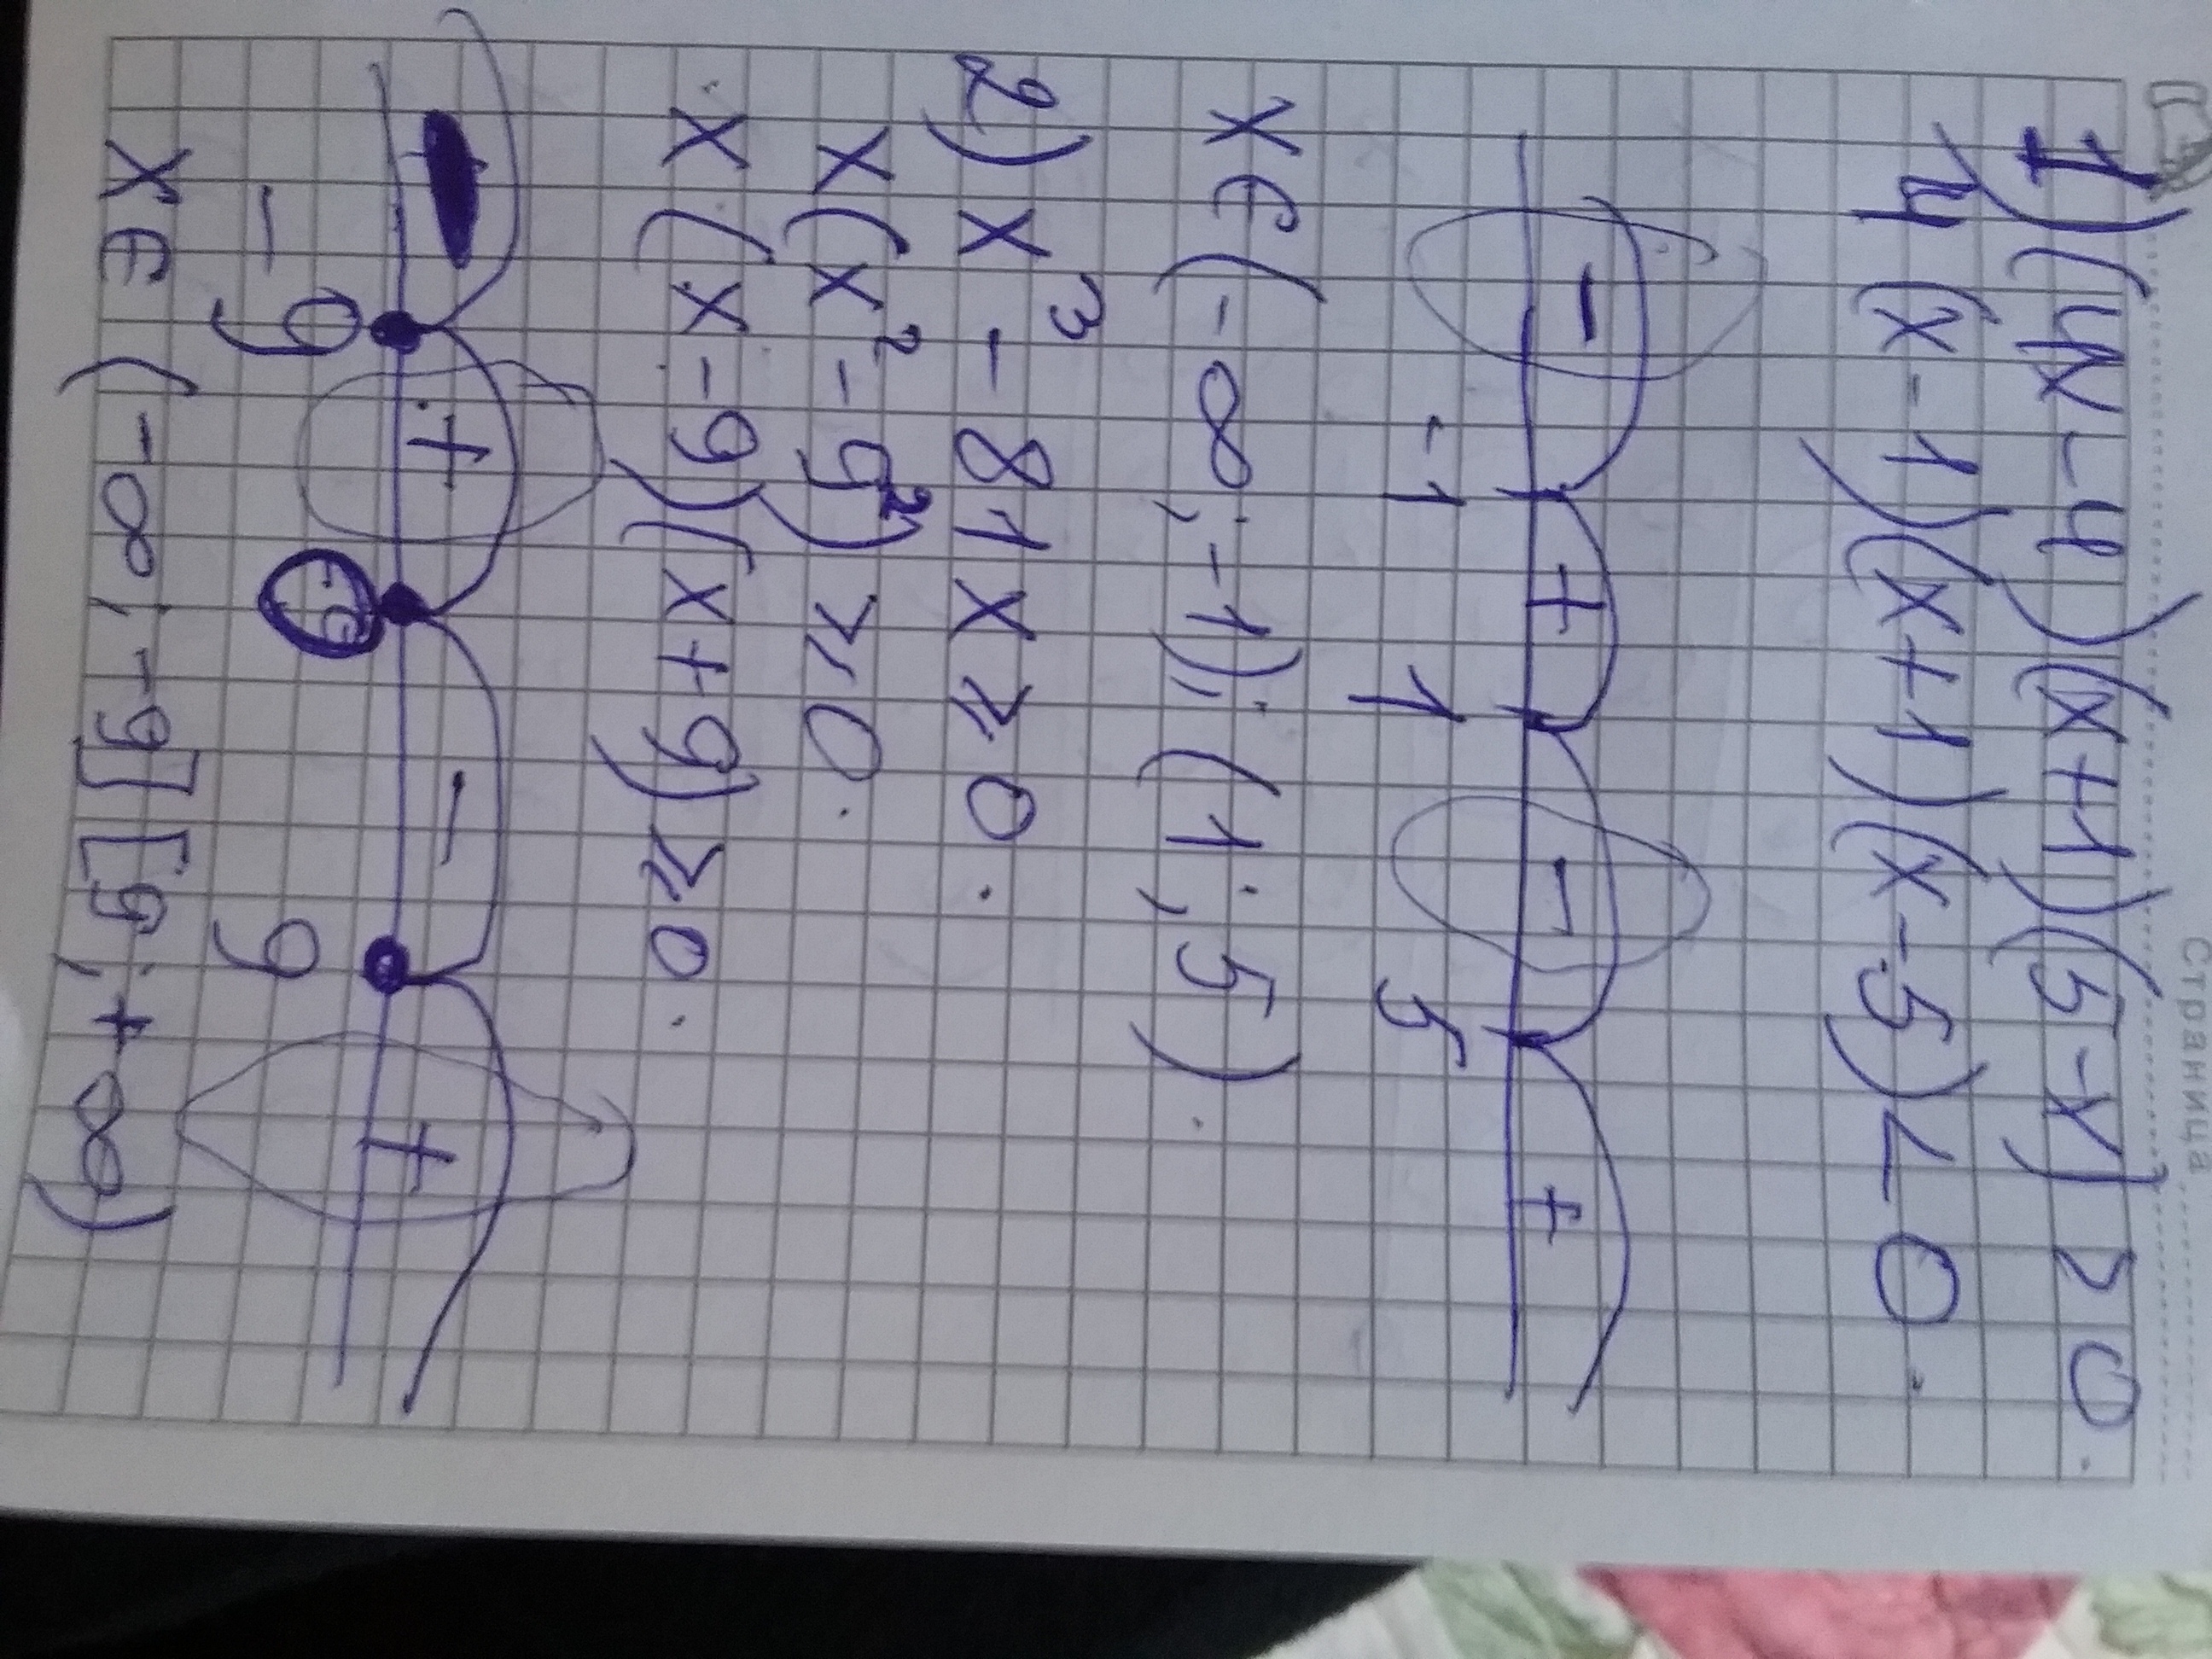 Страница
1) (4x-4)(x+1)(5-x)>0.
4(x-1)(x+1)(x-5)<0.
- + - +
-1 1 5
x∈(-∞;-1);(1;5).
2) x³-81x⩾0.
x(x²-9²)⩾0.
x(x-9)(x+9)⩾0.
+ - +
-9 9
x∈(-∞;-9][9;+∞)